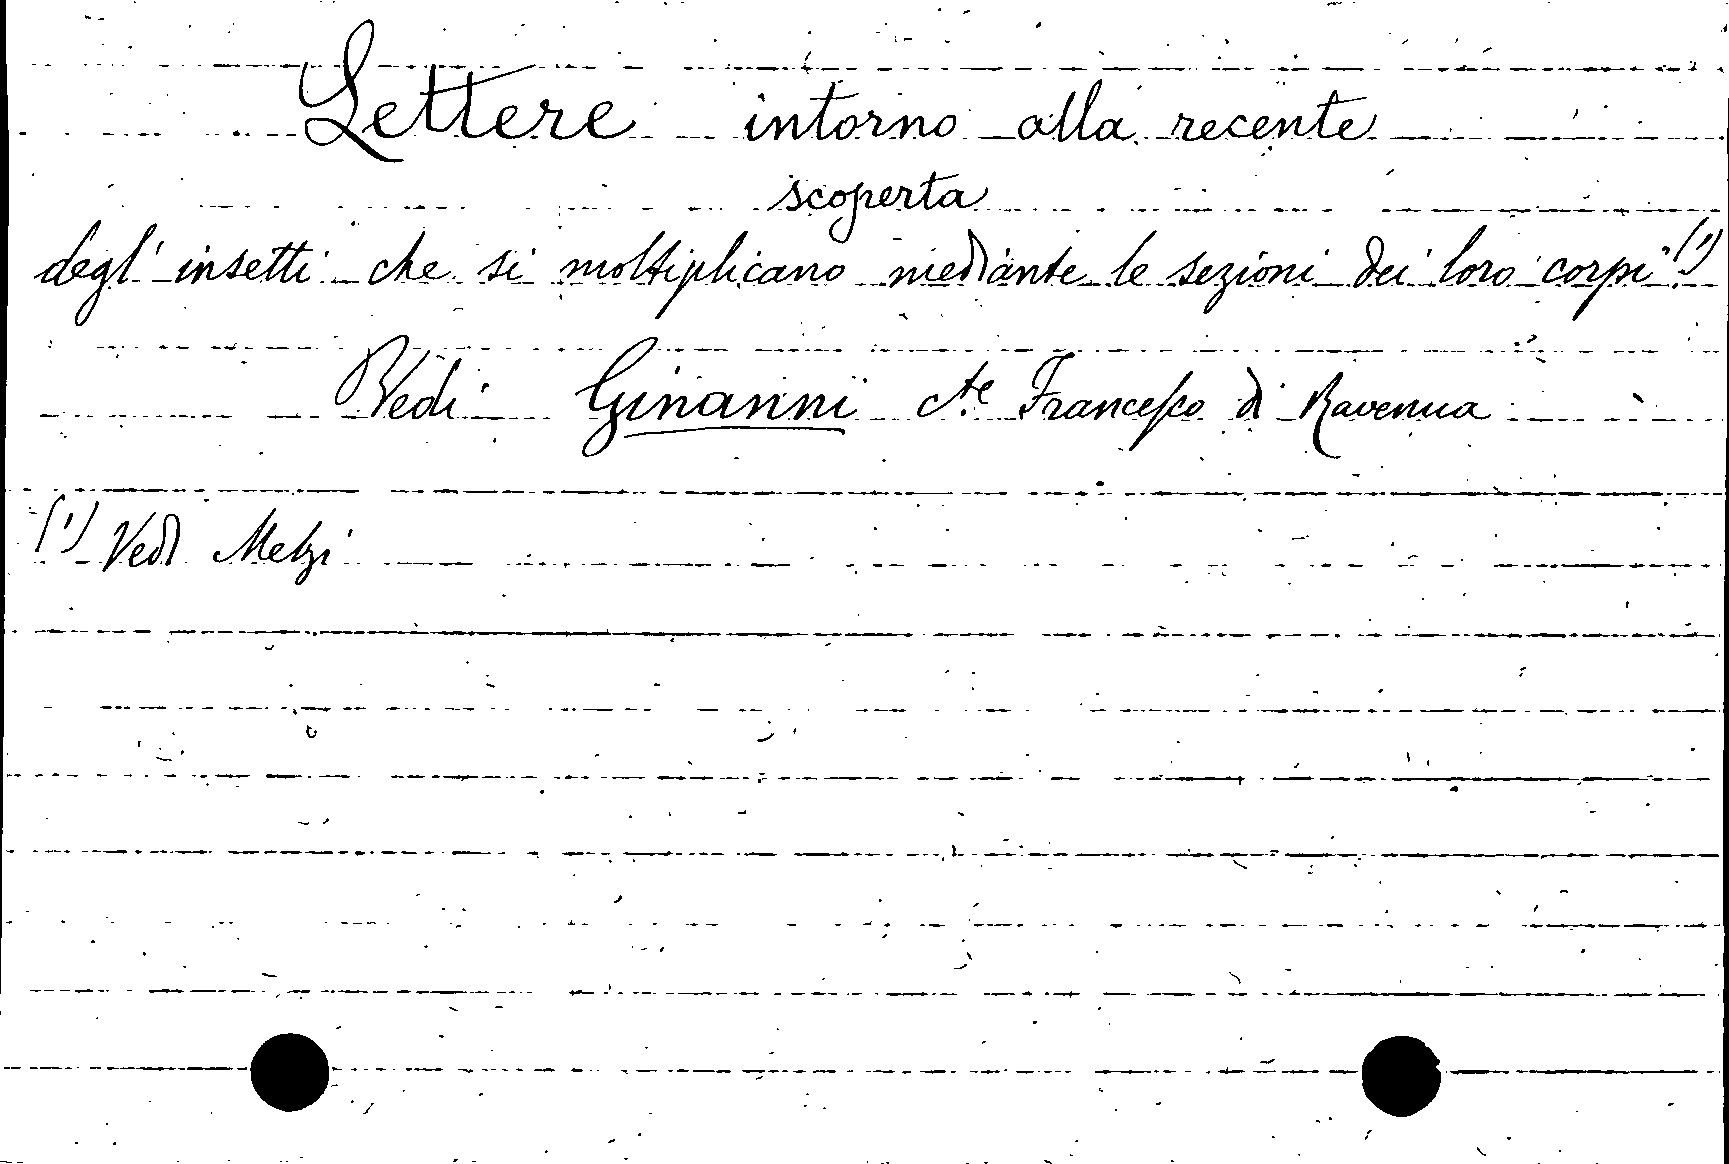 Lettere intorno alla recente
scoperta
degl' insetti che si moltiplicano mediante le sezioni dei loro corpi (1)
Vedi Ginanni Cte Francesco di Ravenna
(1) Vedi Melzi